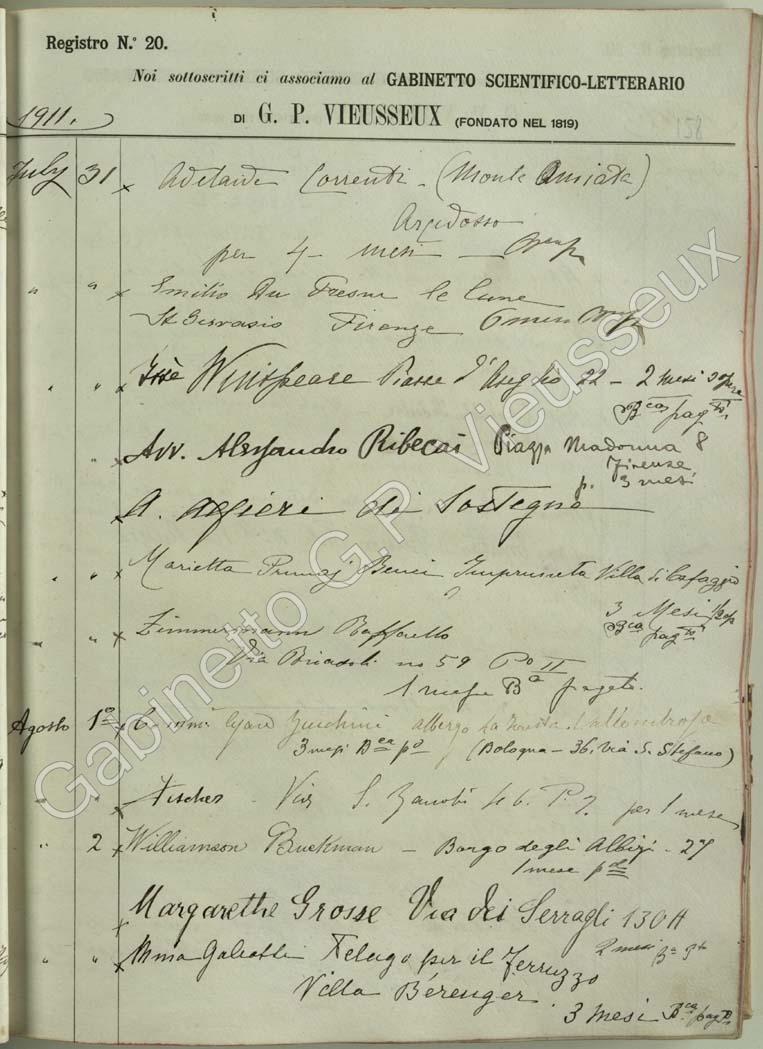 Registro N.° 20.
Noi sottoscritti ci associamo al GABINETTO SCIENTIFICO-LETTERARIO
1911.
DI G. P. VIEUSSEUX (FONDATO NEL 1819)
158
July 31 x Adelaide Correnti - (Monte Amiata)
Arcidosso
per 4 mesi
" " x Emilio Du Fresne le Cune
St Gervasio Firenze 6 mesi
" " x Winspeare Piazza d'Azeglio 22 - 2 mesi
Bca pag
" x Avv. Alessandro Ribecai Piazza Madonna 8
Firenze
p. 3 mesi
x A. Alfieri di Sostegno
" " x Marietta Benci Impruneta Villa di Cafaggio
3 Mesi
Bca pag
" x Zimmermann Raffaello
Via no 59 Po II
1 mese Ba pagato
Agosto 1° x Zucchini albergo la Foresta Vallombrosa
3 mesi Bca po (Bologna - 36. via S. Stefano)
" x Fischer - Via S. Zanobi P. per 1 mese
" 2 x Williamson Buckman - Borgo degli Albizi - 27
1 mese pd
x Margarethe Grosse Via dei Serragli 130A
2 mesi Ba
" " x Emma Galeotti Pelago per il Ferruzzo
Villa Bérenger.
3 mesi Bca pag
Gabinetto G.P. Vieusseux